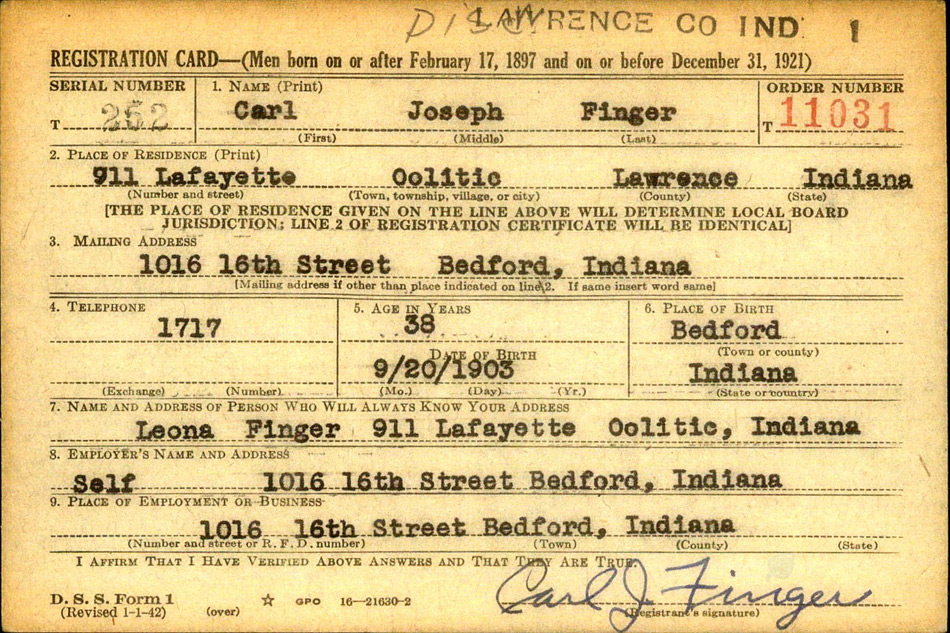 DISC. LAWRENCE CO IND. 1
REGISTRATION CARD—(Men born on or after February 17, 1897 and on or before December 31, 1921)
SERIAL NUMBER 1. NAME (Print) ORDER NUMBER
T 252 Carl Joseph Finger T 11031
(First) (Middle) (Last)
2. PLACE OF RESIDENCE (Print)
911 Lafayette Oolitic Lawrence Indiana
(Number and street) (Town, township, village, or city) (County) (State)
[THE PLACE OF RESIDENCE GIVEN ON THE LINE ABOVE WILL DETERMINE LOCAL BOARD
JURISDICTION; LINE 2 OF REGISTRATION CERTIFICATE WILL BE IDENTICAL]
3. MAILING ADDRESS
1016 16th Street Bedford, Indiana
[Mailing address if other than place indicated on line 2. If same insert word same]
4. TELEPHONE 5. AGE IN YEARS 6. PLACE OF BIRTH
1717 38 Bedford
DATE OF BIRTH (Town or county)
9/20/1903 Indiana
(Exchange) (Number) (Mo.) (Day) (Yr.) (State or country)
7. NAME AND ADDRESS OF PERSON WHO WILL ALWAYS KNOW YOUR ADDRESS
Leona Finger 911 Lafayette Oolitic, Indiana
8. EMPLOYER'S NAME AND ADDRESS
Self 1016 16th Street Bedford, Indiana
9. PLACE OF EMPLOYMENT OR BUSINESS
1016 16th Street Bedford, Indiana
(Number and street or R. F. D. number) (Town) (County) (State)
I AFFIRM THAT I HAVE VERIFIED ABOVE ANSWERS AND THAT THEY ARE TRUE.
D. S. S. Form 1 Carl J Finger
(Revised 1-1-42) (over) ☆ GPO 16—21630-2 (Registrant's signature)